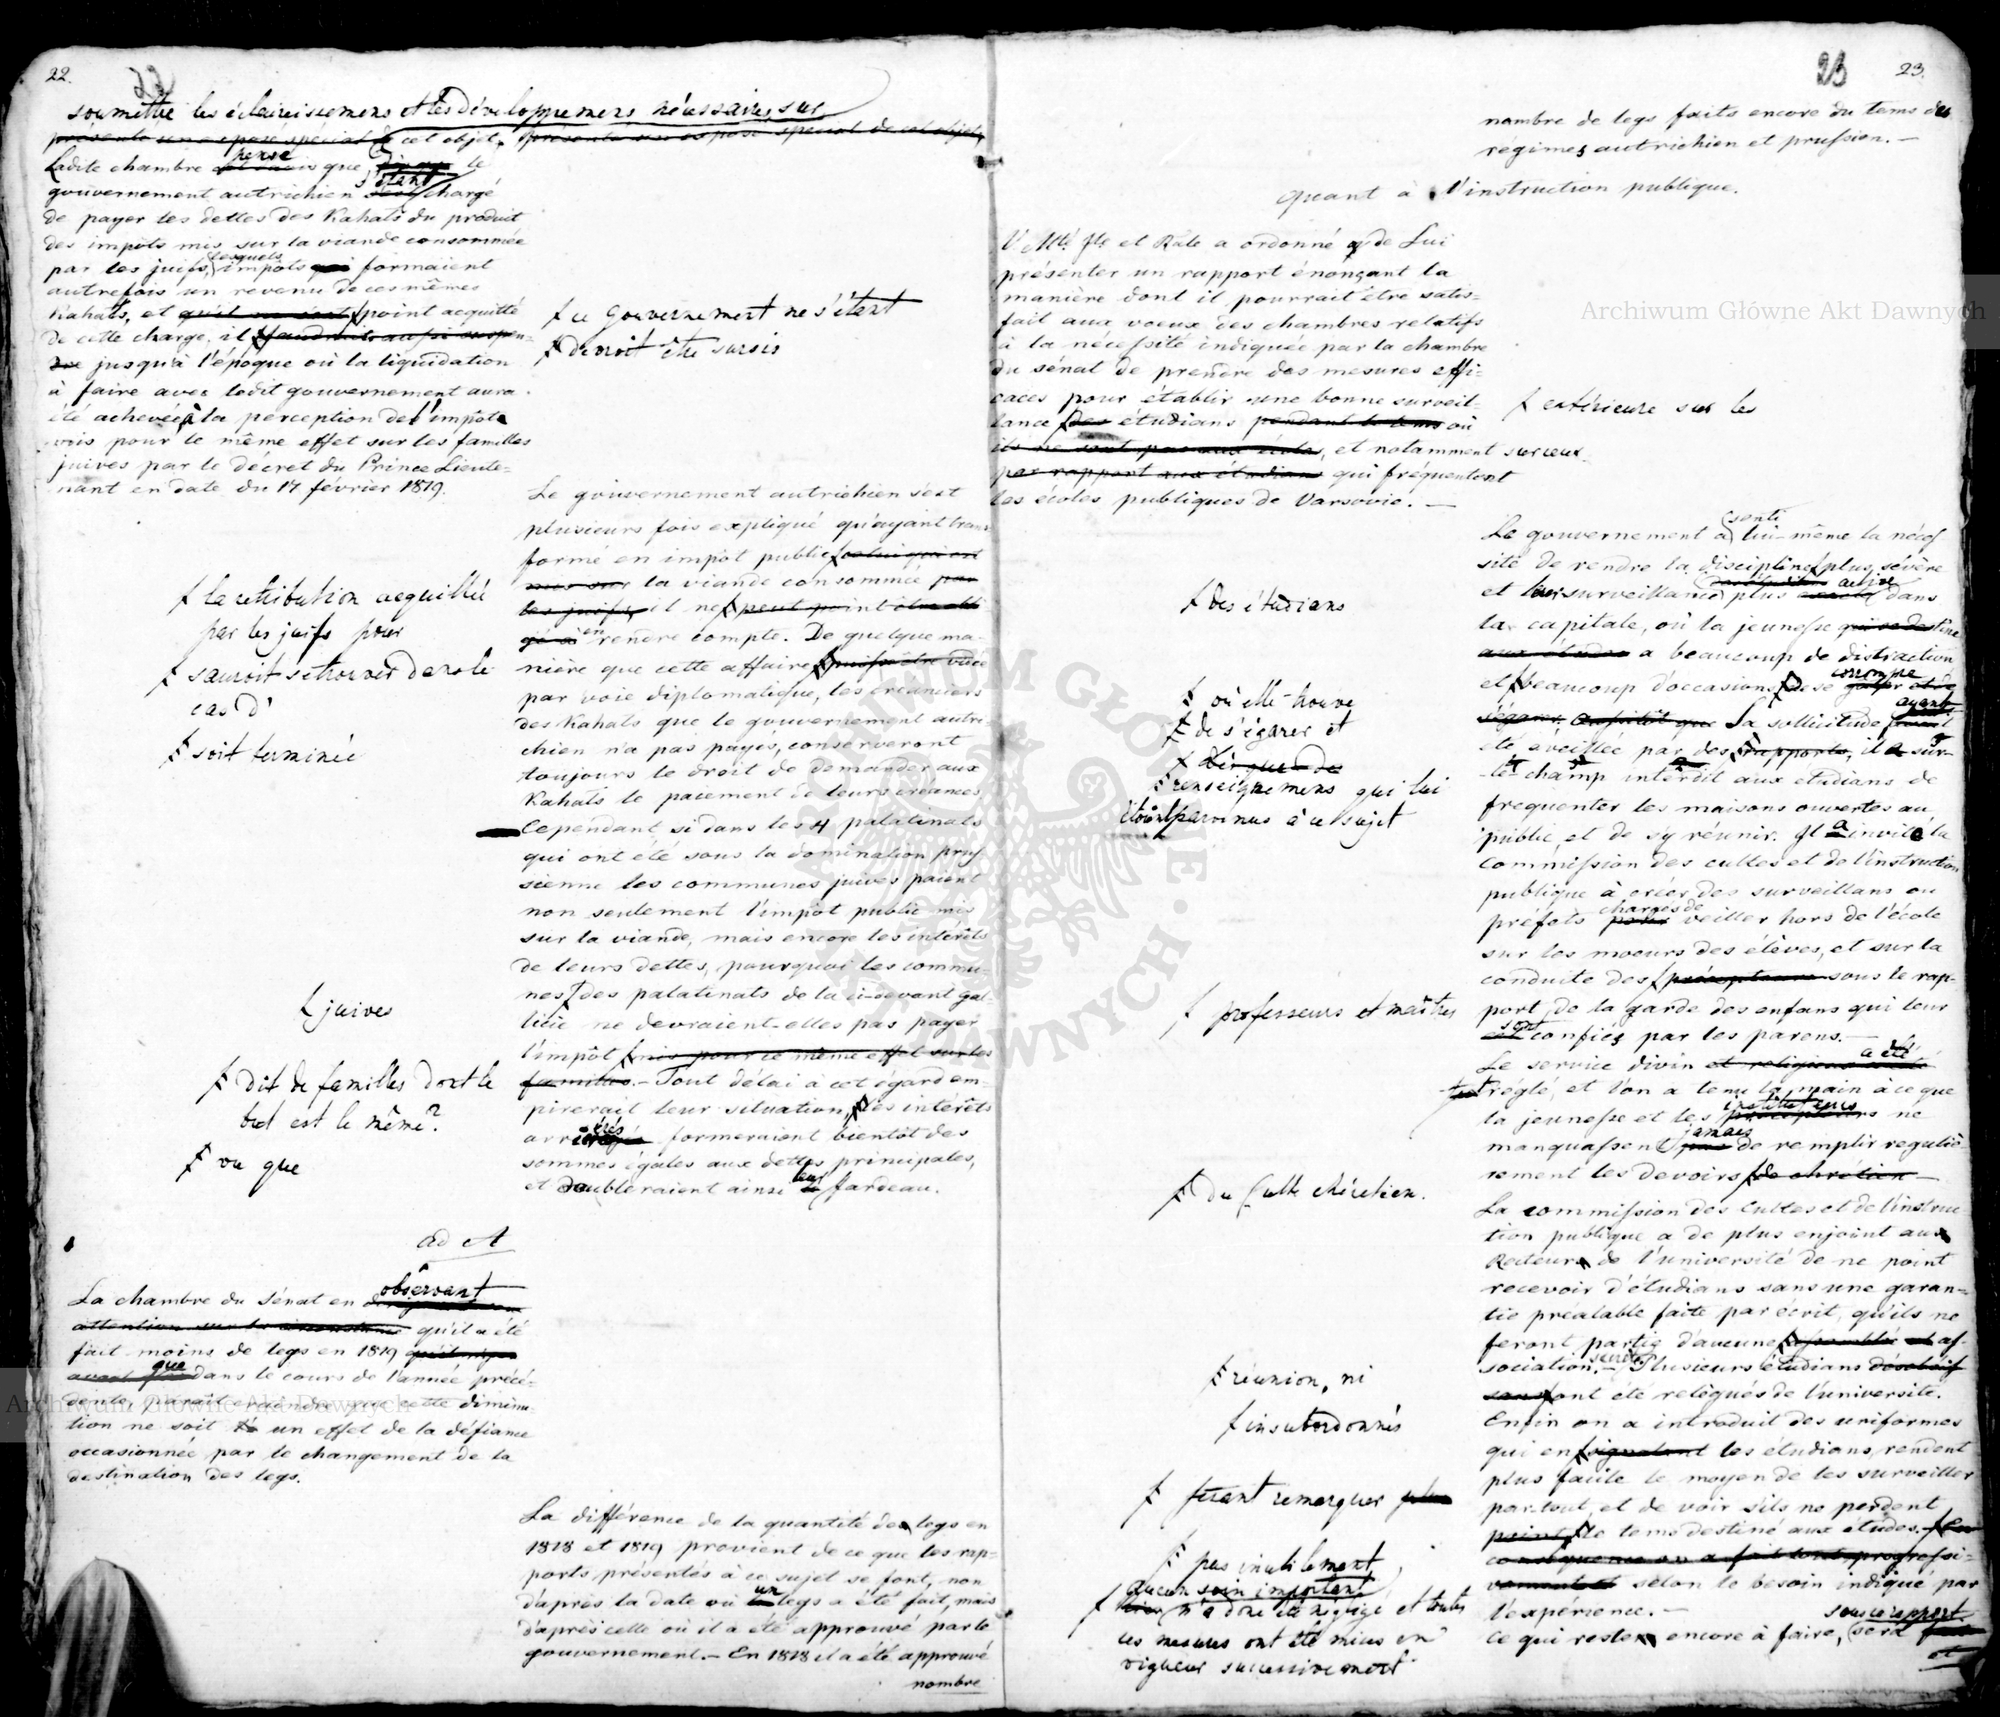 22.
soumettre les éclaircissemens et les développemens nécessaires sur
présenté un exposé spécial de cet objet, présenté un exposé spécial de cet objet,
Ladite chambre pense que le
gouvernement autrichien s'étant chargé
de payer les dettes des Kahals du produit
des impôts mis sur la viande consommée
par les juifs, lesquels impôts qui formaient
autrefois un revenu de ces mêmes
Kahals, et qu'il ne s'est point acquitté
de cette charge, il faudrait aussi suspen-
dre jusqu'à l'époque où la liquidation
à faire avec ledit gouvernement aura
été achevée, la perception de l'impôt
mis pour le même effet sur les familles
juives par le décret du Prince Lieute-
nant en date du 17 février 1819.
ce gouvernement ne s'étant
devroit être sursis
Le gouvernement autrichien s'est
plusieurs fois expliqué qu'ayant trans-
formé en impôt public celui qui est
mis sur la viande consommée par
les juifs, il ne peut point être obli
gé à en rendre compte. De quelque ma-
nière que cette affaire puisse être vidée
par voie diplomatique, les créanciers
des Kahals que le gouvernement autri-
chien n'a pas payés, conserveront
toujours le droit de demander aux
Kahals le paiement de leurs créances
Cependant si dans les 4 palatinats
qui ont été sous la domination prus-
sienne les communes juives paient
non seulement l'impôt public mis
sur la viande, mais encore les intérêts
de leurs dettes, pourquoi les commu-
nes des palatinats de la ci-devant Gal-
licie ne devraient-elles pas payer
l'impôt mis pour ce même effet sur les
familles. - Tout délai à cet égard em-
pirerait leur situation, les intérêts
arriérés formeraient bientôt des
sommes égales aux dettes principales,
et doubleraient ainsi leur fardeau.
la rétribution acquittée
par les juifs pour
sauroit se trouver dans le
cas d'
soit terminée
juives
dit de familles dont le
but est le même?
vu que
ad A
La chambre du Sénat en observant
attention sur la circonstance qu'il a été
fait moins de legs en 1819
que dans le cours de l'année précé-
dente, paraît craindre que cette diminu-
tion ne soit un effet de la défiance
occasionnée par le changement de la
destination des legs.
La différence de la quantité des legs en
1818 et 1819 provient de ce que les rap-
ports présentés à ce sujet se font, non
d'après la date où un legs a été fait, mais
d'après celle où il a été approuvé par le
gouvernement. - En 1818 il a été approuvé
nombre
23 23.
nombre de legs faits encore du tems des
regimes autrichien et prussien. -
Quant à l'instruction publique.
V. Mté Ile et Rle a ordonné de Lui
présenter un rapport énonçant la
manière dont il pourrait être satis-
fait aux voeux des chambres relatifs
à la nécessité indiquée par la chambre
du sénat de prendre des mesures effi-
caces pour établir une bonne surveil-
lance des étudians pendant le tems où
ils ne sont pas aux écoles, et notamment sur ceux
par rapport aux étudians qui fréquentent
les écoles publiques de Varsovie. -
extérieure sur les
Le gouvernement a senti lui-même la néces
sité de rendre la discipline plus sévère
et leur surveillance plus active dans
la capitale, où la jeunesse qui se destine
aux études a beaucoup de distraction
et beaucoup d'occasions de se corrompre
Sa sollicitude ayant
été éveillée par des rapports, il a sur-
le-champ interdit aux etudians de
frequenter les maisons ouvertes au
public, et de s'y réunir. Il a invité la
Commission des cultes et de l'instruction
publique à créer des surveillans ou
préfets chargés de veiller hors de l'école
sur les moeurs des élèves, et sur la
conduite des précepteurs sous le rap-
port de la garde des enfans qui leur
sont confiés par les parens. -
Le service divin a été
réglé, et l'on a tenu la main à ce que
la jeunesse et les instituteurs ne
manquassent jamais de remplir regulie-
rement les devoirs de chrétien -
La commission des Cultes et de l'instruc
tion publique a de plus enjoint au
Recteur de l'université de ne point
recevoir d'étudians sans une garan-
tie préalable faite par écrit, qu'ils ne
feront partie d'aucune assemblée et as-
sociation secrète. - Plusieurs étudians désobéis
sans ont été relégués de l'université.
Enfin on a introduit des uniformes
qui en signalant les étudians, rendent
plus facile le moyen de les surveiller
partout, et de voir s'ils ne perdent
point le tems destiné aux études.
selon le besoin indiqué par
l'expérience. -
Ce qui reste encore à faire, sous ce rapport sera
et
des étudians
où elle trouve
de s'égarer et
renseignemens qui lui
étoient parvenus à ce sujet
professeurs et maîtres
du Culte chrétien.
réunion, ni
insubordonnés
faisant remarquer plus
pas inutilement
Aucun soin important
n'a donc été négligé et toutes
ces mesures ont été mises en
vigueur successivement
Archiwum Główne Akt Dawnych
Archiwum Główne Akt Dawnych
ARCHIWUM GŁÓWNE AKT DAWNYCH